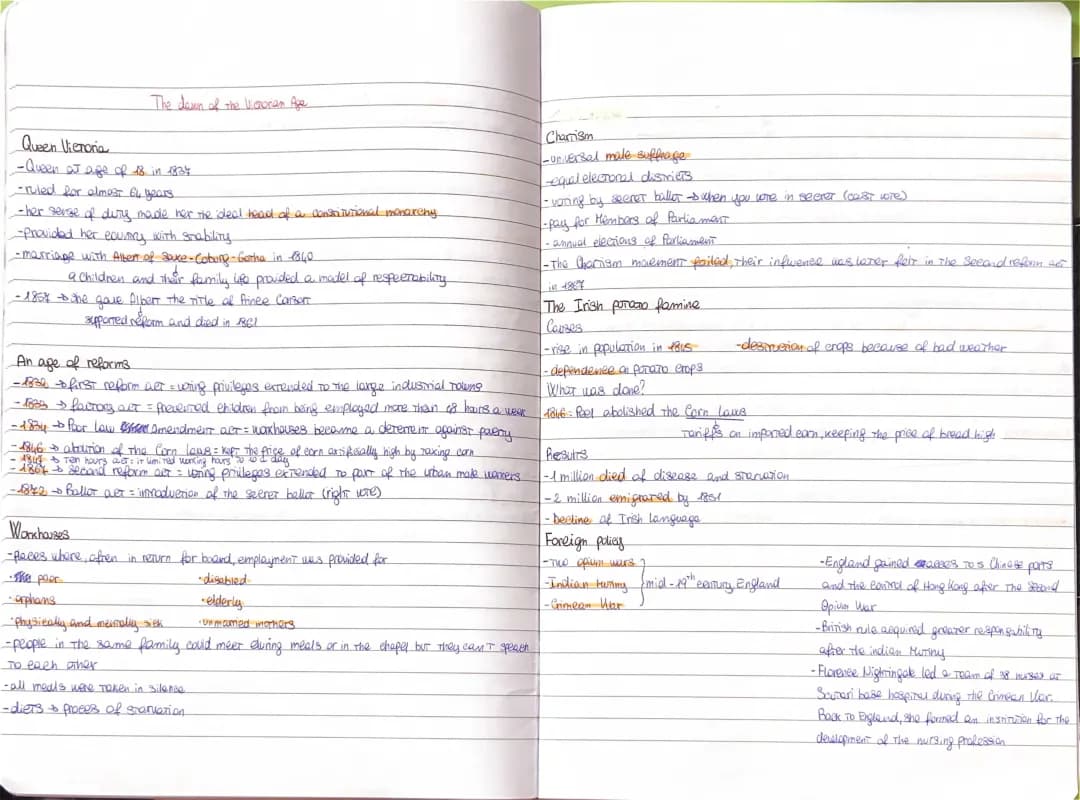 The dawn of the Victorian Age
Queen Victoria
-Queen at age of 18 in 1837
-ruled for almost 64 years
-her sense of duty made her the ideal head of a constitutional monarchy
-provided her country with stability
-marriage with Albert of Saxe-Coburg-Gotha in 1840
9 children and their family life provided a model of respectability
-1857 → she gave Albert the title of Prince Consort
supported reform and died in 1861
An age of reforms
-1832 → first reform act = voting privileges extended to the large industrial towns
-1833 → factory act = prevented children from being employed more than 48 hours a week
-1834 → Poor Law amendment act = workhouses become a deterrent against poverty
-1846 → abolition of the Corn laws = kept the price of corn artificially high by taxing corn
-1847 → Ten hours act = it limited working hours to 10 a day
-1867 → second reform act = voting privileges extended to part of the urban male workers
-1872 → Ballot act = introduction of the secret ballot (right vote)
Workhouses
-places where, often in return for board, employment was provided for
·the poor ·disabled
·orphans ·elderly
·physically and mentally sick ·unmarried mothers
-people in the same family could meet during meals or in the chapel but they can't speach
to each other
-all meals were taken in silence
-diets → process of starvation
Chartism
-universal male suffrage
-equal electoral districts
-voting by secret ballot → when you vote in secret (cast vote)
-pay for Members of Parliament
-annual elections of Parliament
-The Chartism movement failed, their influence was later felt in the second reform act
in 1867
The Irish potato famine
Causes
-rise in population in 1845 -destruction of crops because of bad weather
-dependence on potato crops
What was done?
1846: Peel abolished the Corn Laws
Tariffs on imported corn, keeping the price of bread high
Results
-1 million died of disease and starvation
-2 million emigrated by 1851
-Decline of Irish language
Foreign policy
-Two opium wars
-Indian mutiny } mid-19th century England
-Crimean War
-England gained access to 5 Chinese ports
and the control of Hong Kong after the second
Opium War
-British rule acquired greater responsibility
after the indian Mutiny
-Florence Nightingale led a team of 38 nurses at
Scutari base hospital during the Crimean War.
Back to England, she formed an institution for the
development of the nursing profession